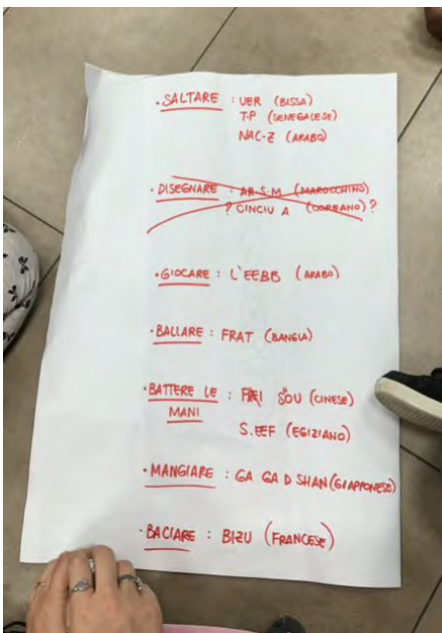 • SALTARE : UER (BISSA)
T-P (SENEGALESE)
NAC-Z (ARABO)
• DISEGNARE : AR-S-M (MAROCCHINO)
? CINCIU A (COREANO) ?
• GIOCARE : L'EEBB (ARABO)
• BALLARE : FRAT (BANGLA)
• BATTERE LE : PAI SOU (CINESE)
MANI
S.EEF (EGIZIANO)
• MANGIARE : GA GA D SHAN (GIAPPONESE)
• BACIARE : BIZU (FRANCESE)